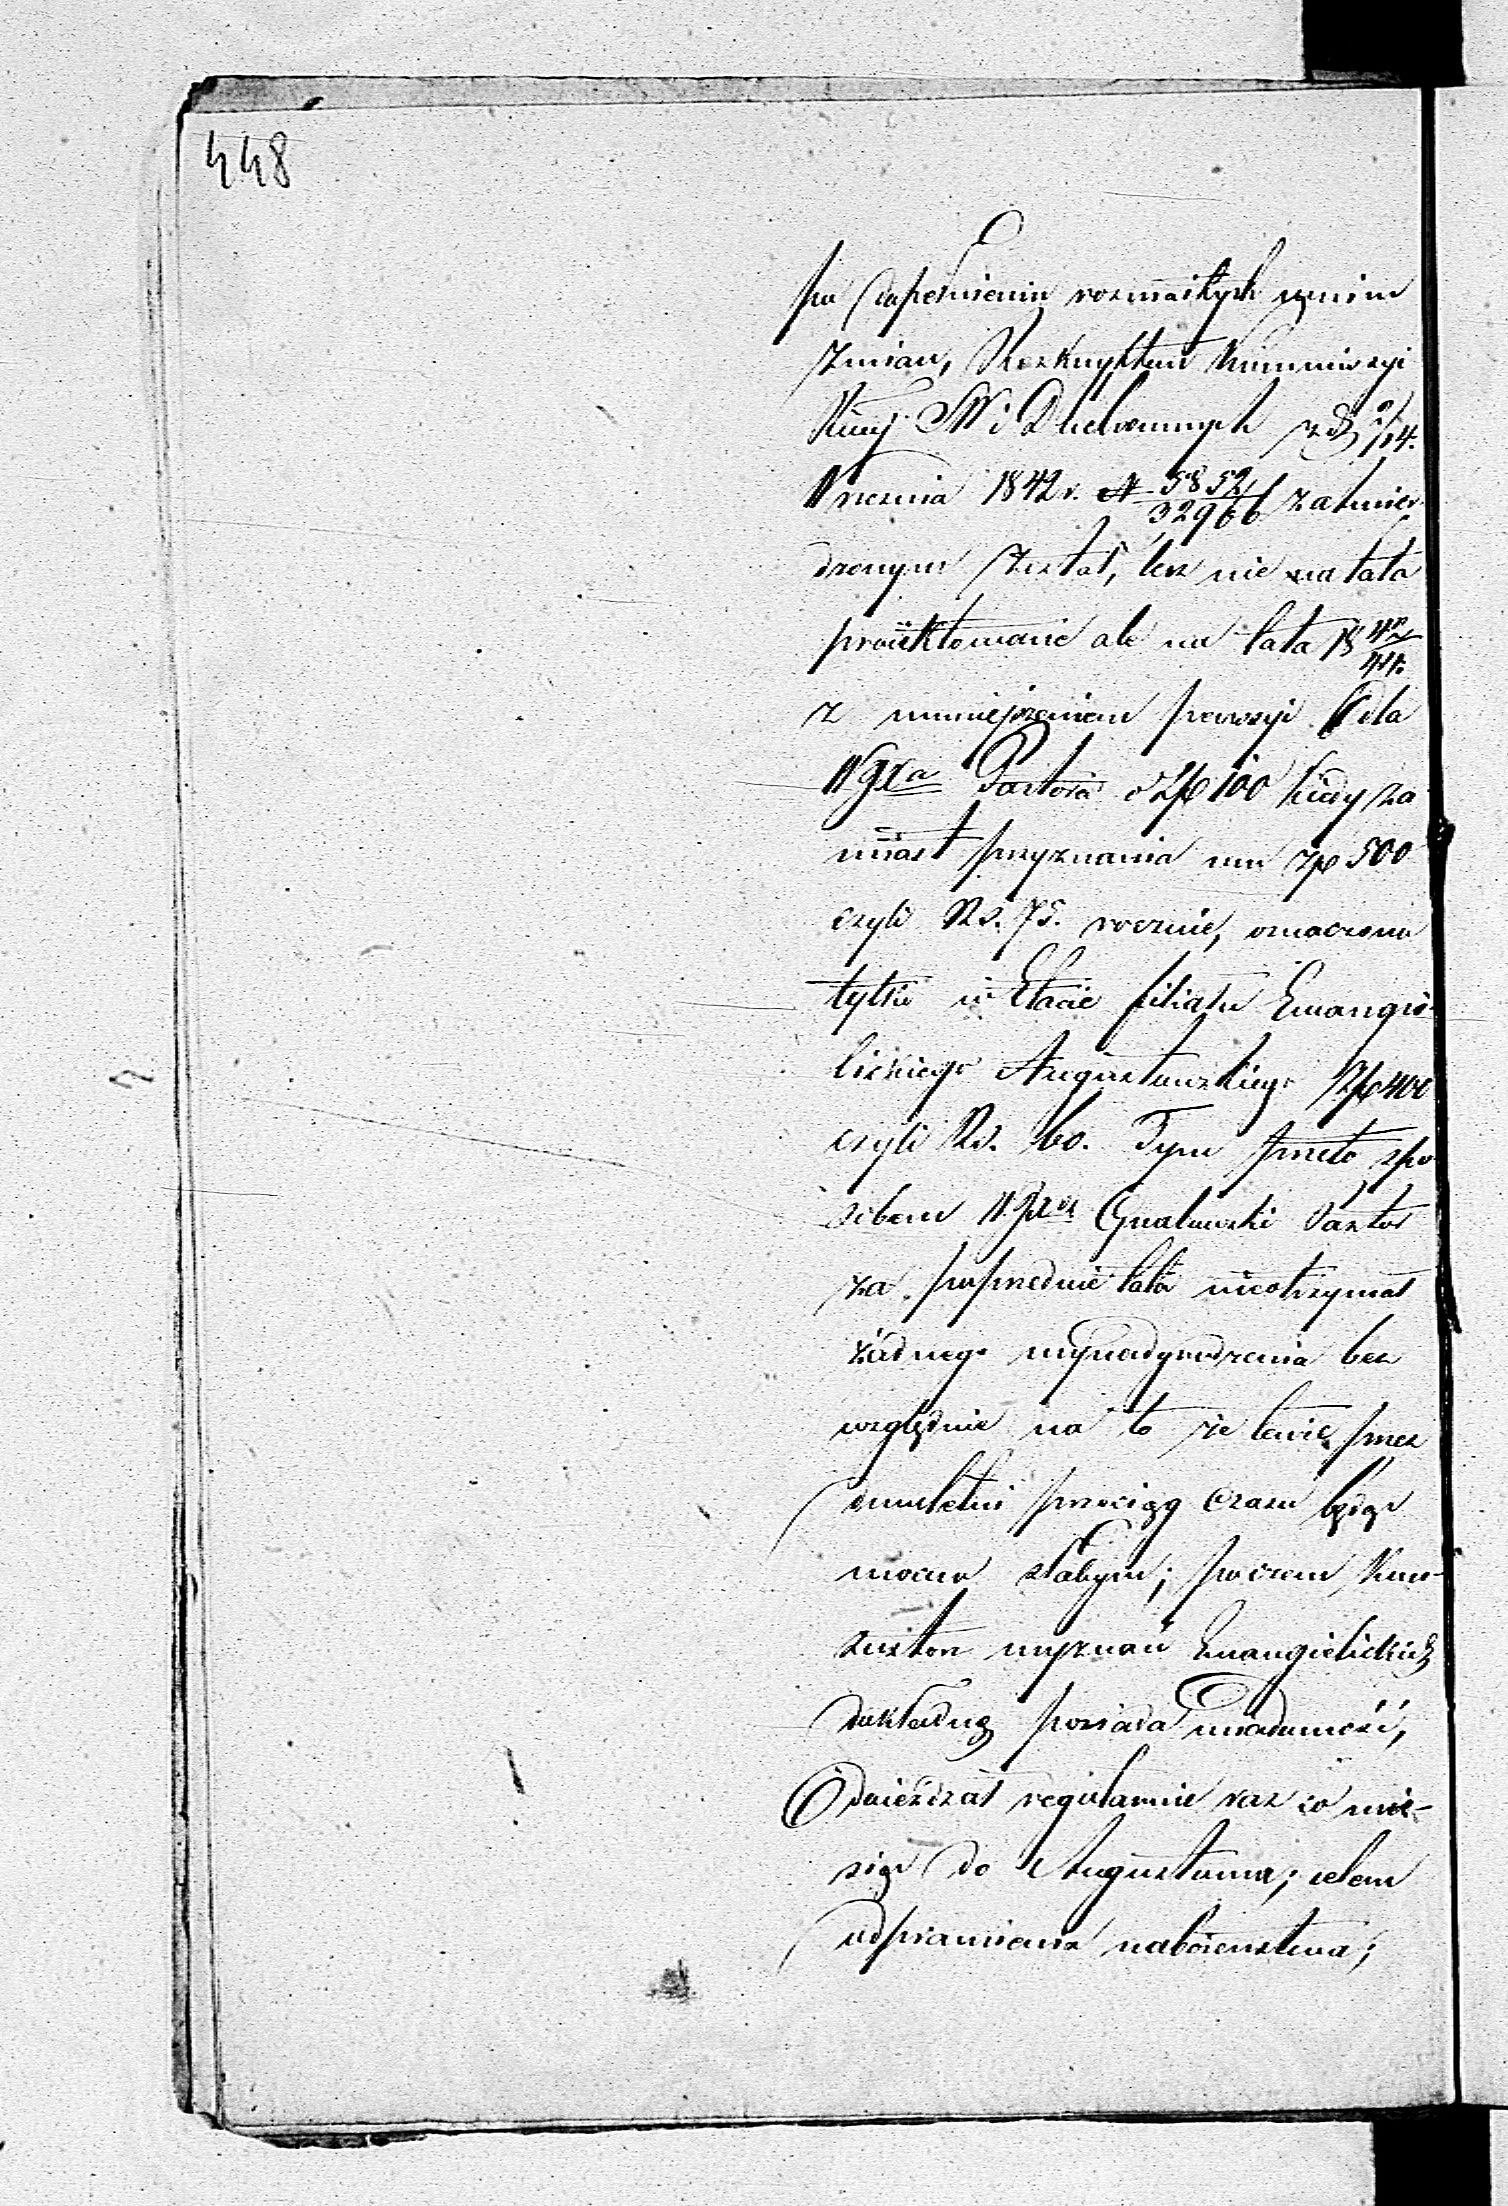 448
po dopełnieniu rozmaitych w nim
zmian, Reskryptem Kommissyi
Rząd. SW i Duchownych z d. 2/14.
Września 1842 r. N 5852/32966 zatwier
dzonym został, lecz nie na lata
proiektowane ale na lata 18 42/44.
z umniejszeniem pensyi dla
WgXa Pastora o Zp 100 kiedy za
miast przyznania mu Zp 500
czyli Rs. 75. rocznie, oznaczono
tylko w Etacie filiału Ewangie-
lickiego Augustowskiego Zp 400
czyli Rs. 60. Tym przeto spo
sobem WJXdz Pastor
za poprzednie lata nieotrzymał
żadnego wynadgrodzenia bez
względnie na to że tenże przez
dwuletni przeciąg czasu będąc
mocno słabym; po czem Kon-
systorz wyznań Ewangielickich
dokładną posiada wiadomość,
Odwiedzał regularnie raz co mie-
siąc do Augustowa; celem
odprawienia nabożeństwa;